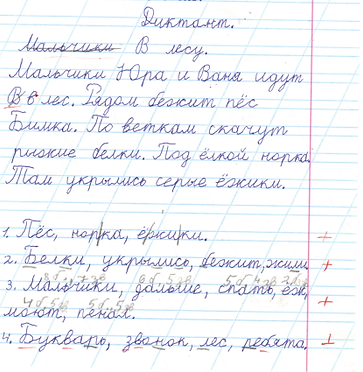 Диктант.
Мальчики В лесу.
Мальчики Юра и Ваня идут
в лес. Рядом бежит пёс
Бимка. По веткам скачут
рыжие белки. Под ёлкой норка.
Там укрылись серые ёжики.
1. Пёс, норка, ёжики. +
2. Белки, укрылись, бежит, жили. +
3. Мальчики, дальше, спать, ёж,
моют, пенал. +
4. Букварь, звонок, лес, ребята.